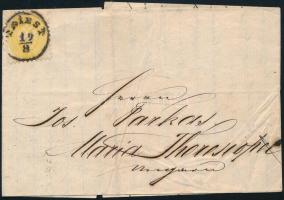 TRIEST
12
8
Herrn
Jos. Farkas
Maria Theresiopel
Ungarn